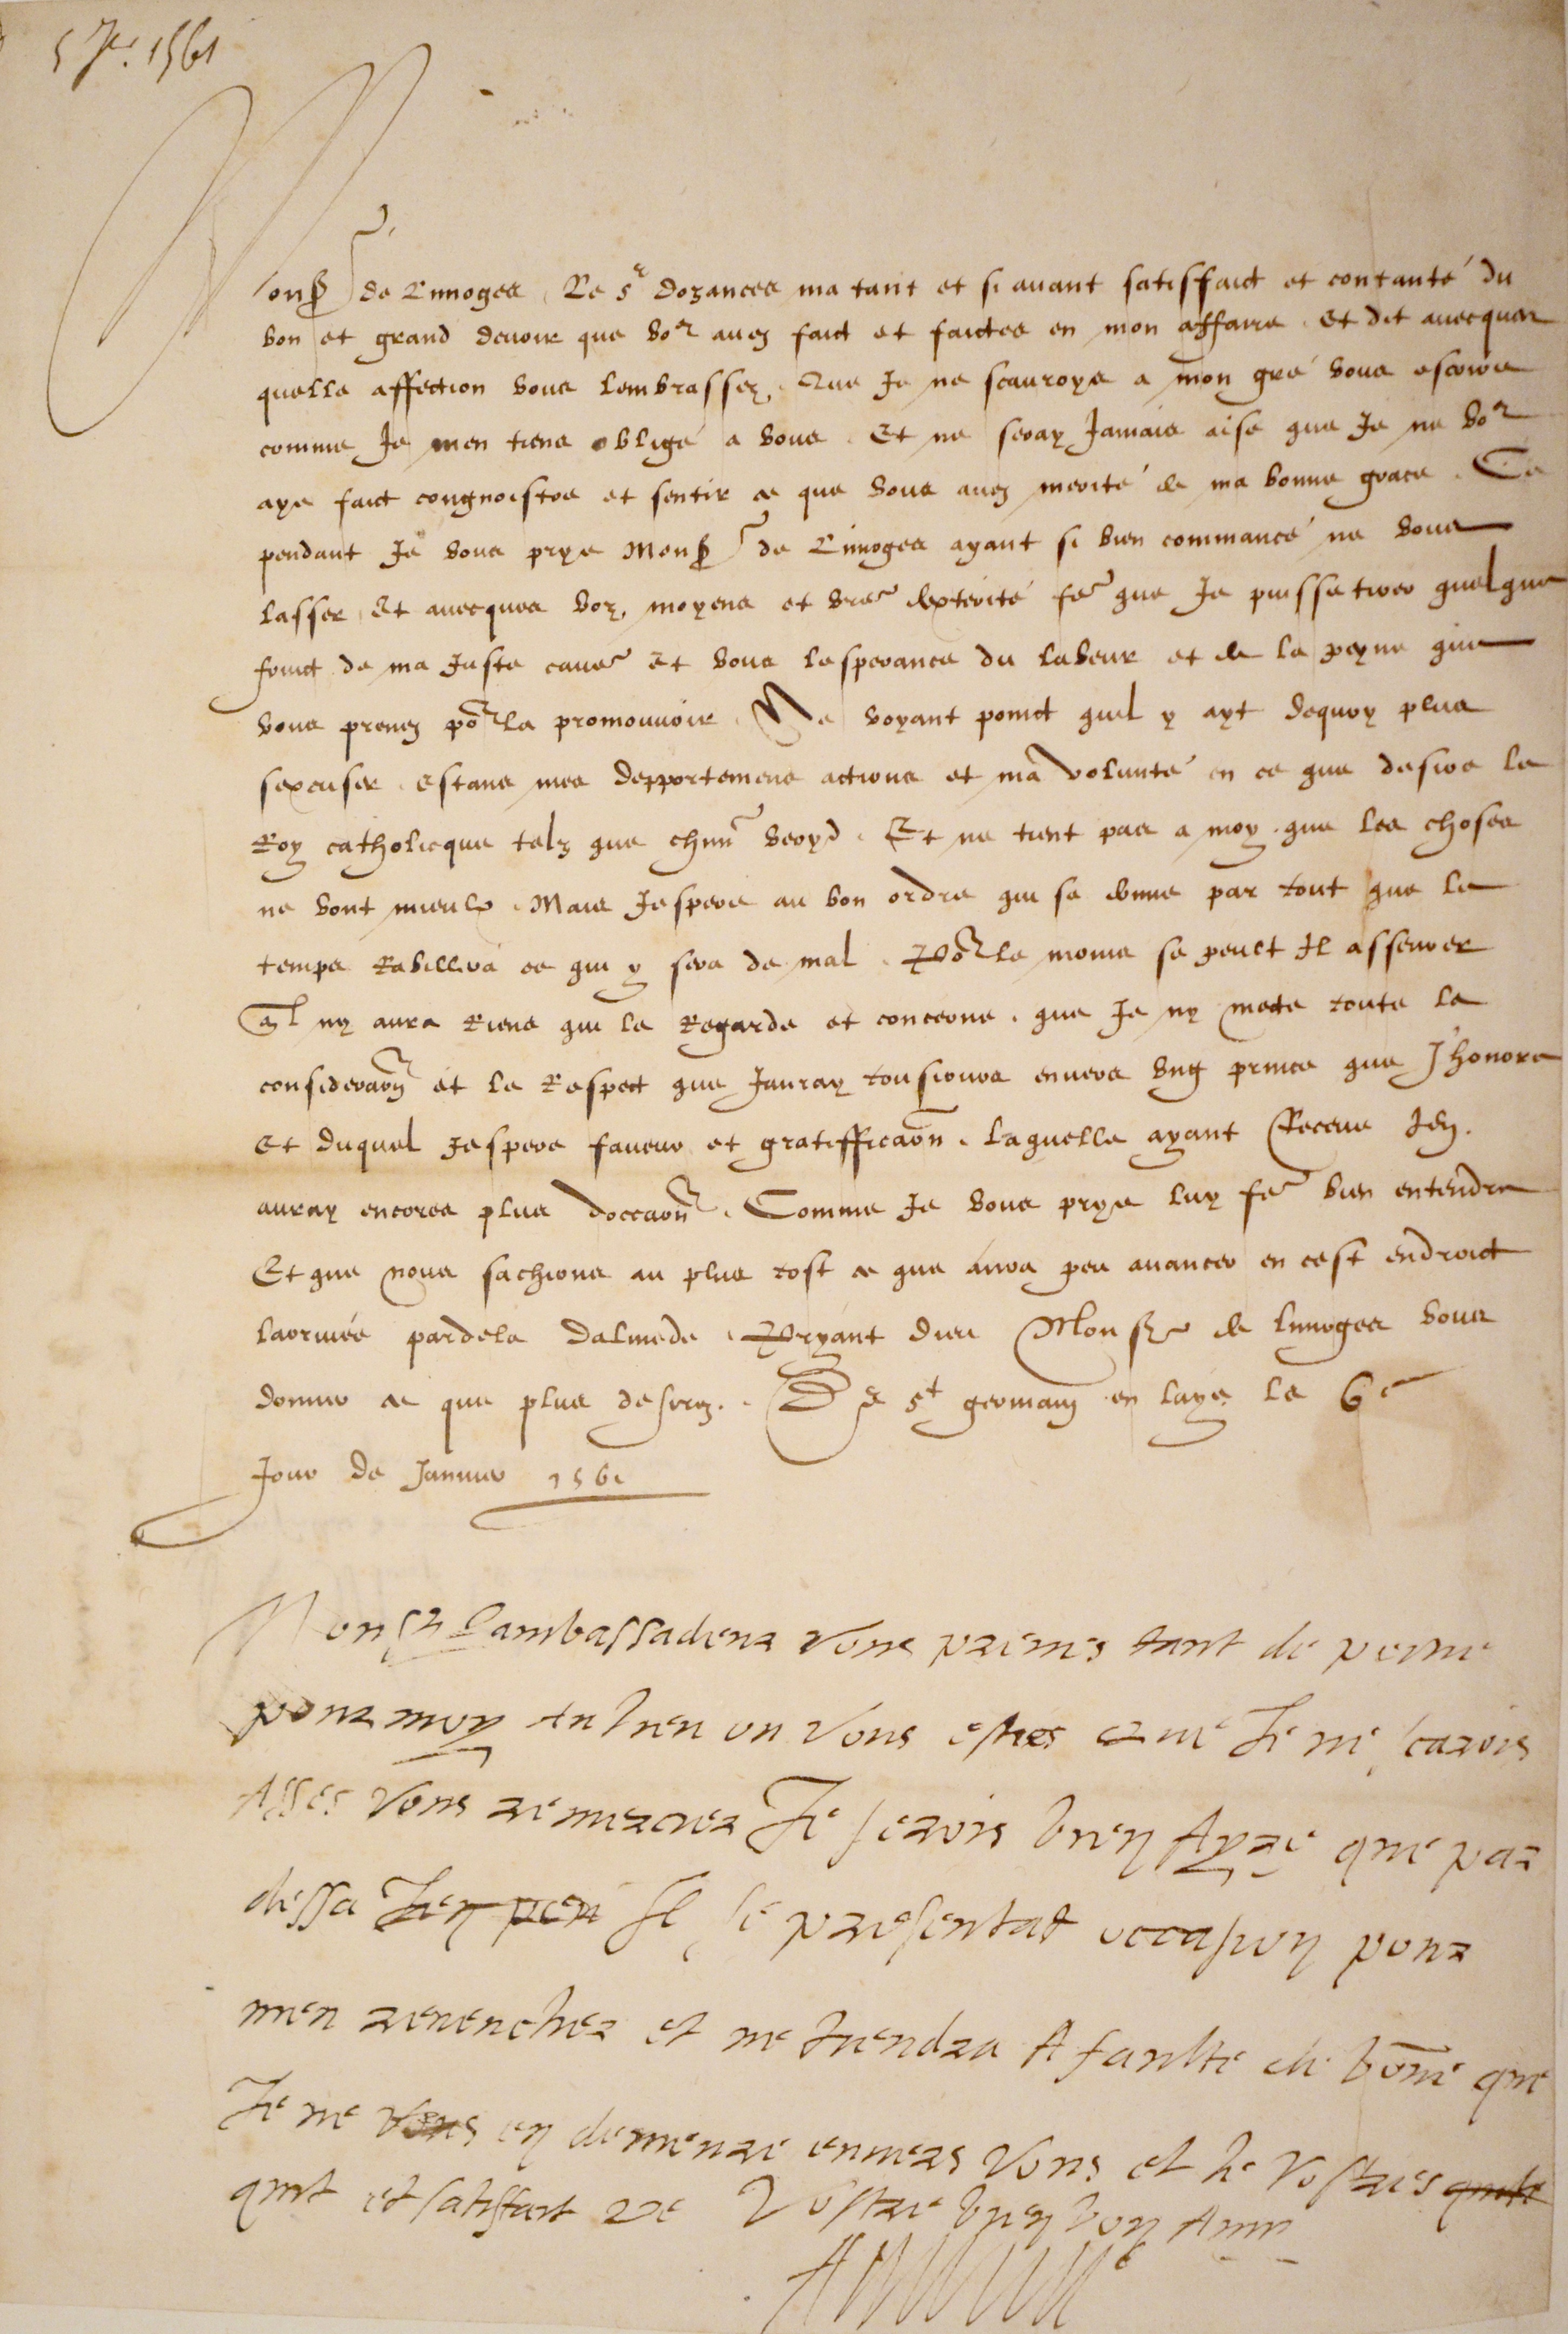 5 Jer. 1561
Monsr de Limoges, Le Sr dozances ma tant et si auant satisffaict et contanté du
bon et grand deuoir que vor auez faict et faictes en mon affaire. Et de auecques
quelle affection vous lembrassez, Que Je ne scauroye a mon gré vous escrire
comme Je men tiens obligé a vous. Et ne seray Jamais aise que Je ne vor
aye faict congnoistre et sentir ce que vous auez merité de ma bonne grace. Ce
pendant Je vous prye Monsr de Limoges ayant si bien commancé ne vous
lasser, Et auecques voz moyens et vre dexterité fe que Je puisse tirer quelque
fruict de ma Juste cause Et vous lesperance du labeur et de la peyne que
vous prenez pór la promouuoir. Ne voyant poinct quil y ayt dequoy plus
sexcuser. estans mes depportemens actions et ma volunté en ce que desire le
Roy catholicque telz que chun veoyd. Et ne tient pas a moy que les choses
ne vont mieulx. Mais Jespere au bon ordre qui se donne par tout que le
temps Rabillera ce qui y sera de mal. Pór le moins se peult Il asseurer
ql ny aura Riens qui le Regarde et concerne, que Je ny mecte toute la
consideraon et le Respect que Jauray tousiours enuers vng prince que Jhonore
Et duquel Jespere faueur et gratifficaon. Laquelle ayant Receue Jen
auray encores plus doccaon. Comme Je vous prye luy fe bien entendre
Et que nous sachions au plus tost ce que aura peu auancer en cest endroict
larriuée pardela Dalmede. Pryant Dieu Monsr de Limoges vous
donner ce que plus desirez. De St germain en laye le 6e
Jour de Januier 1561
Monsr Lambassadeur vous prenes tant de peine
pour moy au lieu ou vous estes que Je ne scarois
Asses vous remercier Je serois bien Ayze que par
dessa Il se presentat occasion pour
men reuencher et ne tiendra A faulte de bōne que
Je ne vous en demeure enuers vous et le vostres quite
quit et satisfait De Vostre bien bon Amy